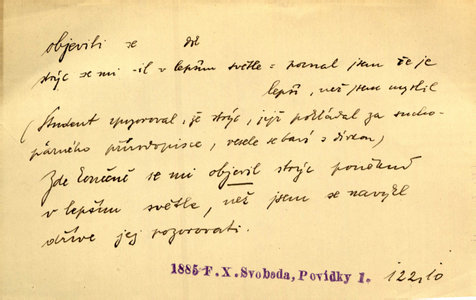 objeviti se
strýc se mi -il v lepším světle = poznal jsem že je
lepší, než jsem myslil
(Student zpozoroval, že strýc, jejž pokládal za sucho-
párného přírodopisce, vesele se baví s dívkou)
Zde konečně se mi objevil strýc poněkud
v lepším světle, než jsem se navykl
dříve jej pozorovati.
1885 F. X. Svoboda, Povídky 1. 122,10